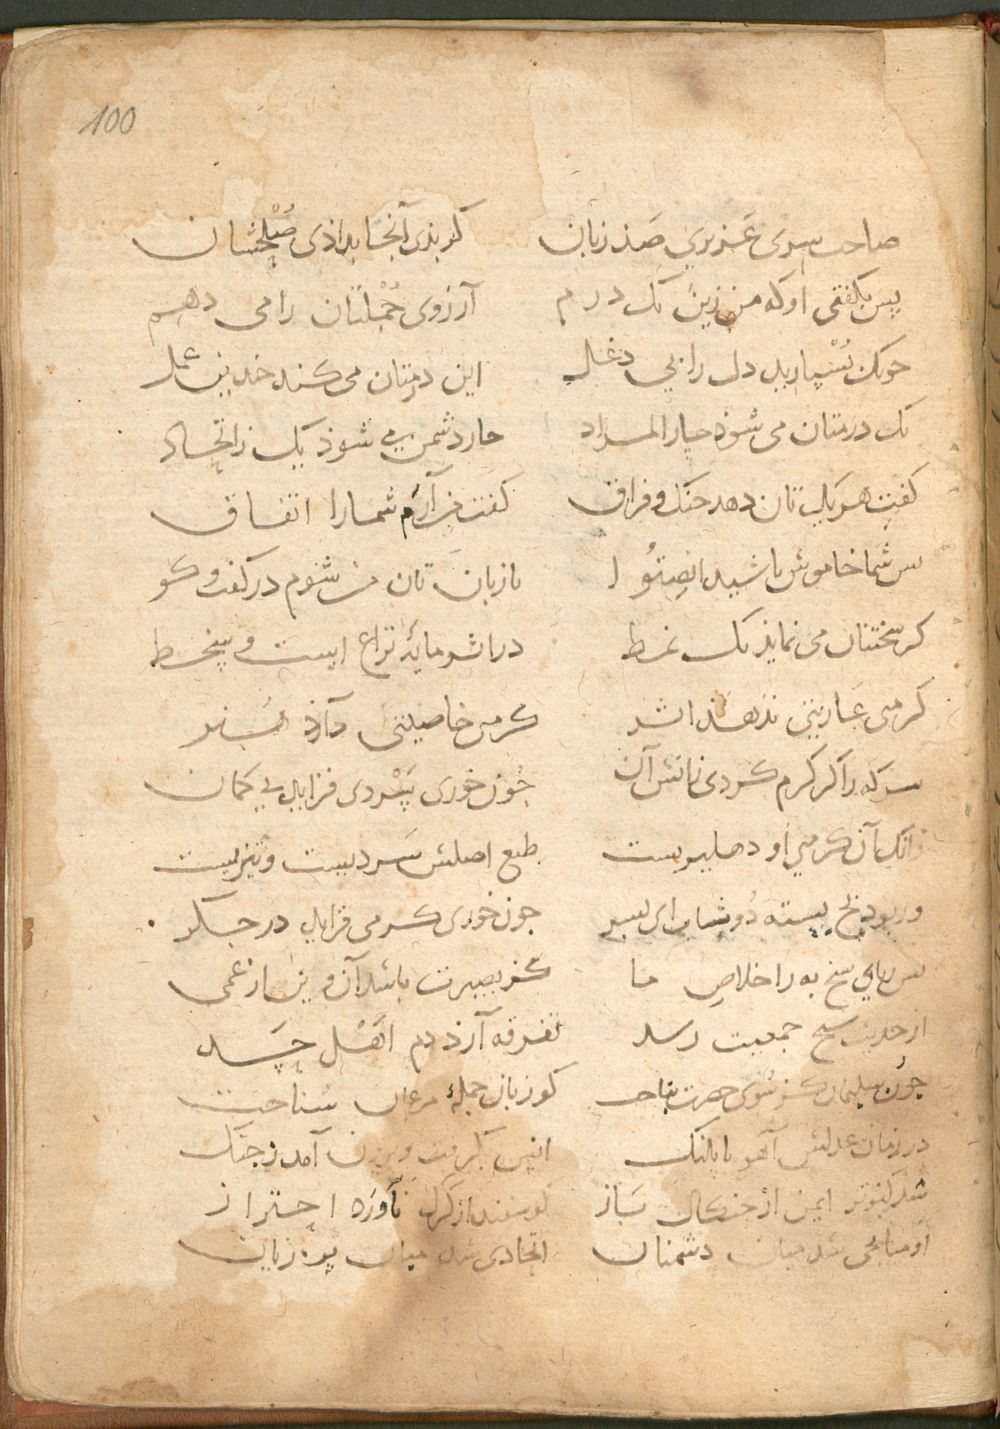 100
صاحب سری عزیزی صد زبان کر بذی آنجا بداذی صلحشان
پس بکفتی او که من زین یک درم آرزوی جملتان را می دهم
چونک بسپارید دل را بی دغل این درمتان می کند چندین عمل
یک درمتان می شوذ چار المراد چار دشمن می شوذ یک ز اتحاد
کفت هر یک تان دهد جنک و فراق کفت من آرد شمارا اتفاق
پس شما خاموش باشید انصتوا تا زبان تان من شوم در کفت و کو
کر سختتان می نمایذ یک نمط در اثر مایهٔ نزاع است و سخط
کرمی عاریتی ندهذ اثر کرمی خاصیتی دارذ هنر
سرکه را کر کرم کردی زاتش آن چون خوری سردی فزاید بی کمان
زانک آن کرمی او دهلیزیست طبع اصلش سردیست و تیزیست
ور بود یخ بسته دوشاب ای پسر چون خوری کرمی فزاید در جکر
پس ریای شیخ به ز اخلاص ما کز بصیرت باشد آن وین از عمی
از حدیث شیخ جمعیت رسد تفرقه آرذ دم اهل حسد
چون سلیمان کز سوی حضرت بتاخت کو زبان جملهٔ مرغان شناخت
در زمان عدلش آهو با پلنک انس بکرفت و برون آمد ز جنک
شد کبوتر ایمن از چنکال باز کوسفند از کرک ناورد احتراز
او میانجی شد میان دشمنان اتحادی شد میان پر زنان